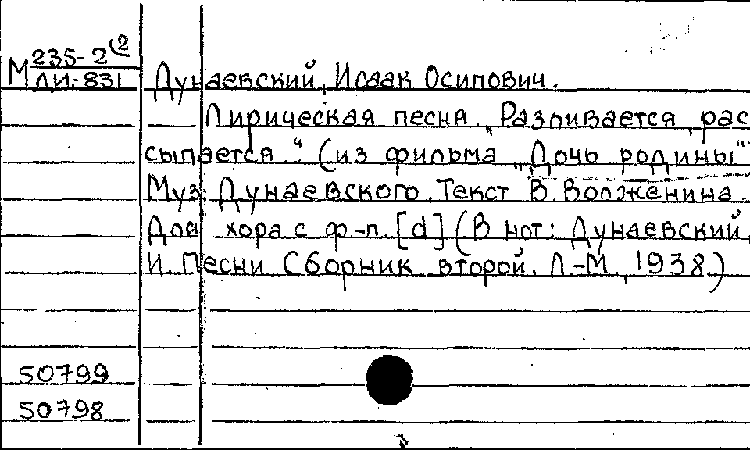 М 235-2 (2
ЛИ-831
Дунаевский, Исаак Осипович.
Лирическая песня „Разливается, рас
сыпается." (из фильма „Дочь родины"
Муз. Дунаевского. Текст В. Волженина.
Для хора с ф-п. [d] (В нот: Дунаевский,
И. Песни Сборник второй. Л.-М., 1938.)
50799
50798